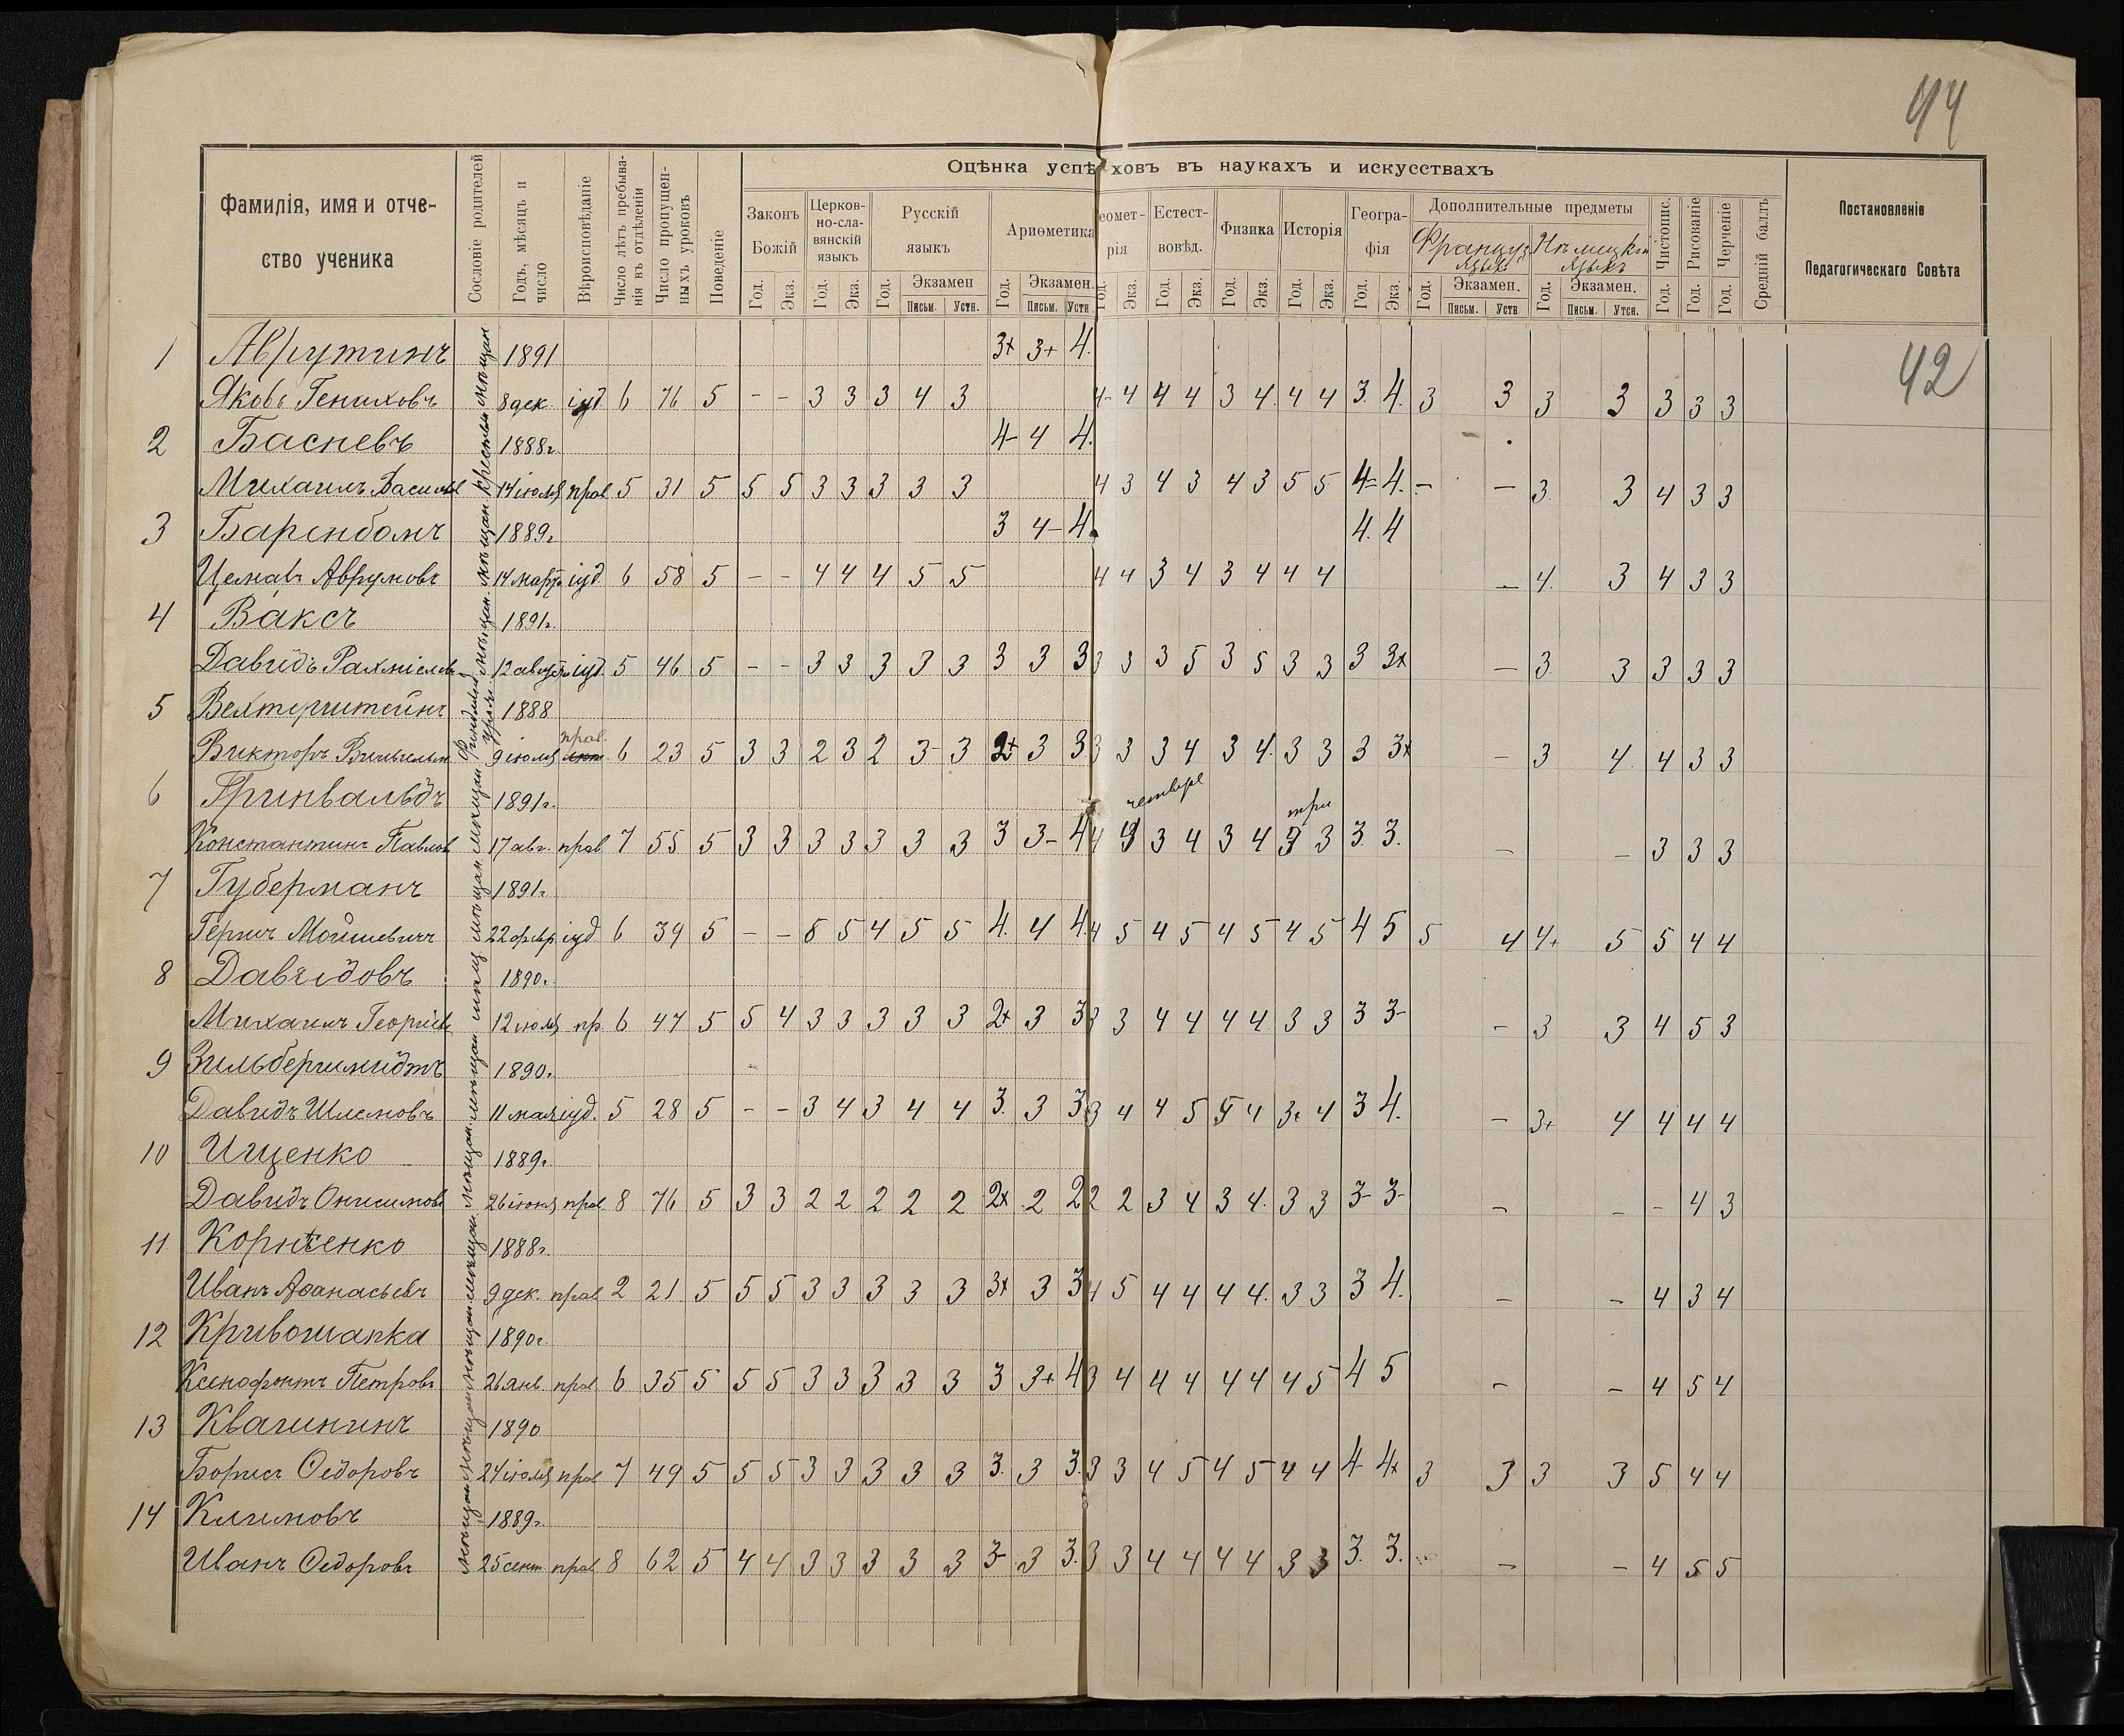 44
Фамилія, имя и отче-
ство ученика
Сословіе родителей
Годъ, мѣсяцъ и
число
Вѣроисповѣданіе
Число лѣтъ пребыва-
нія въ отдѣленіи
Число пропущен-
ныхъ уроковъ
Поведеніе
Оцѣнка успѣховъ въ наукахъ и искусствахъ
Законъ
Божій
Церков-
но-сла-
вянскій
языкъ
Русскій
языкъ
Ариѳметика
еомет-
рія
Естест-
вовѣд.
Физика
Исторія
Геогра-
фія
Дополнительные предметы
Француз.
языкъ
Нѣмецкій
языкъ
Чистопис.
Рисованіе
Черченіе
Средній баллъ
Постановленіе
Педагогическаго Совѣта
Год. Экз. Год. Экз. Год. Экзамен Письм. Устн. Год. Экзамен. Письм. Устн. Год. Экз. Год. Экз. Год. Экз. Год. Экз. Год. Экз. Год. Экзамен. Письм. Устн Год. Экзамен. Письм. Утсн. Год. Год. Год.
1 Аврутинъ 1891 3+ 3+ 4. 42
Яковъ Гениховъ 8 дек. іуд 6 76 5 - - 3 3 3 4 3 4- 4 4 4 3 4 4 4 3. 4. 3 3 3 3 3 3 3
2 Басневъ 1888г. 4- 4 4.
Михаилъ Василь 14 іюля прав 5 31 5 5 5 3 3 3 3 3 4 3 4 3 4 3 5 5 4= 4. - - 3. 3 4 3 3
3 Баренбомъ 1889г 3 4- 4. 4. 4
Аврумовъ 14 март. іуд. 6 58 5 - - 4 4 4 5 5 4 4 3 4 3 4 4 4 - 4. 3 4 3 3
4 Ваксъ 1891г.
Давидъ Рахміелев 12 август іуд. 5 46 5 - - 3 3 3 3 3 3 3 3 3 3 3 5 3 5 3 3 3 3+ - 3. 3 3 3 3
5 Вехтерштейнъ 1888 прав.
Викторъ Вильгельм 9 іюля 6 23 5 3 3 2 3 2 3- 3 2+ 3 3. 3 3 3 4 3 4. 3 3 3 3+ - 3 4. 4 3 3
6 Гринвальдъ 1891г. четыре три
Константинъ Павлов 17 авг. прав 7 55 5 3 3 3 3 3 3 3 3 3- 4 4 4 3 4 3 4 3 3 3. 3. - - 3 3 3
7 Губерманъ 1891г
Гершъ Мойшевичъ 22 февр іуд. 6 39 5 - - 5 5 4 5 5 4. 4 4. 4 5 4 5 4 5 4 5 4 5 5 4 4+ 5 5 4 4
8 Давидовъ 1890г.
Михаилъ Георгіев 12 іюля пр. 6 47 5 5 4 3 3 3 3 3 2+ 3 3 3 3 4 4 4 4 3 3 3 3- - 3 3 4 5 3
9 Зильбершмидтъ 1890г
Давидъ Шлемовъ 11 мая іуд. 5 28 5 - - 3 4 3 4 4 3. 3 3 3 4 4 5 5 4 3+ 4 3 4. - 3+ 4 4 4 4
10 Ищенко 1889г
Давидъ Онисимовъ 26 іюня прав. 8 76 5 3 3 2 2 2 2 2 2+ 2 2 2 2 3 4 3 4. 3 3 3- 3- - - - 4 3
11 Корніенко 1888г
Иванъ Аѳанасьевъ 9 дек. прав 2 21 5 5 5 3 3 3 3 3 3+ 3 3 4 5 4 4 4 4. 3 3 3 4. - - 4 3 4
12 Кривошапка 1890г.
Ксенофонтъ Петровъ 26 янв. прав 6 35 5 5 5 3 3 3 3 3 3 3+ 4 3 4 4 4 4 4 4 5 4 5 - - 4 5 4
13 Квашнинъ 1890
Борисъ Ѳедоровъ 24 іюля прав 7 49 5 5 5 3 3 3 3 3 3. 3 3. 3 3 4 5 4 5 4 4 4 4+ 3 3 3 3 5 4 4
14 Климовъ 1889г.
Иванъ Ѳедоровъ 25 сент прав 8 62 5 4 4 3 3 3 3 3 3- 3 3. 3 3 4 4 4 4 3 3 3. 3. - - 4 5 5